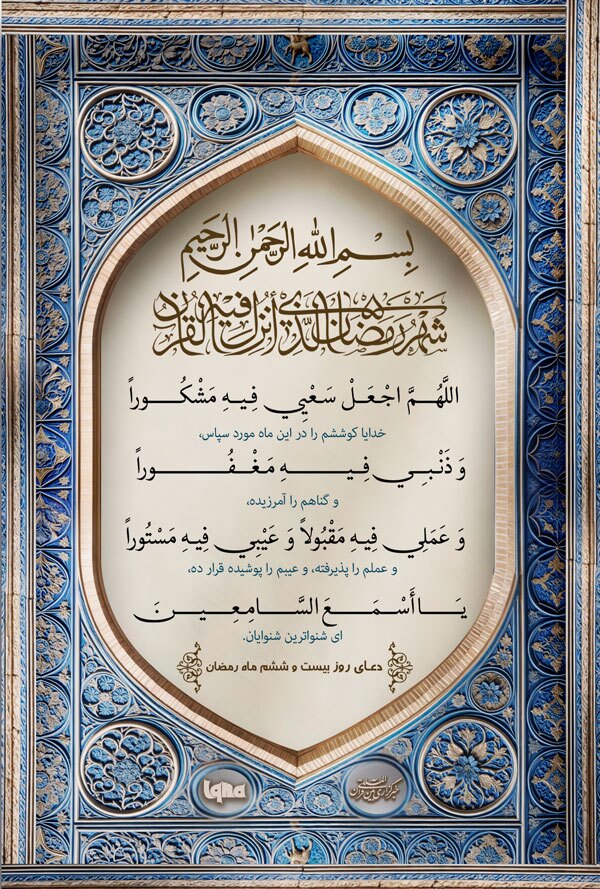 بِسْمِ اللهِ الرَّحْمٰنِ الرَّحِيمِ
شَهْرُ رَمَضَانَ الَّذِي أُنْزِلَ فِيهِ الْقُرْآنُ
اللَّهُمَّ اجْعَلْ سَعْيِي فِيهِ مَشْكُوراً
خدایا کوششم را در این ماه مورد سپاس،
وَ ذَنْبِي فِيهِ مَغْفُوراً
و گناهم را آمرزیده،
وَ عَمَلِي فِيهِ مَقْبُولاً وَ عَيْبِي فِيهِ مَسْتُوراً
و عملم را پذیرفته، و عیبم را پوشیده قرار ده،
يَا أَسْمَعَ السَّامِعِينَ
ای شنواترین شنوایان.
دعای روز بیست و ششم ماه رمضان
خبرگزاری بین المللی قرآن
iqna